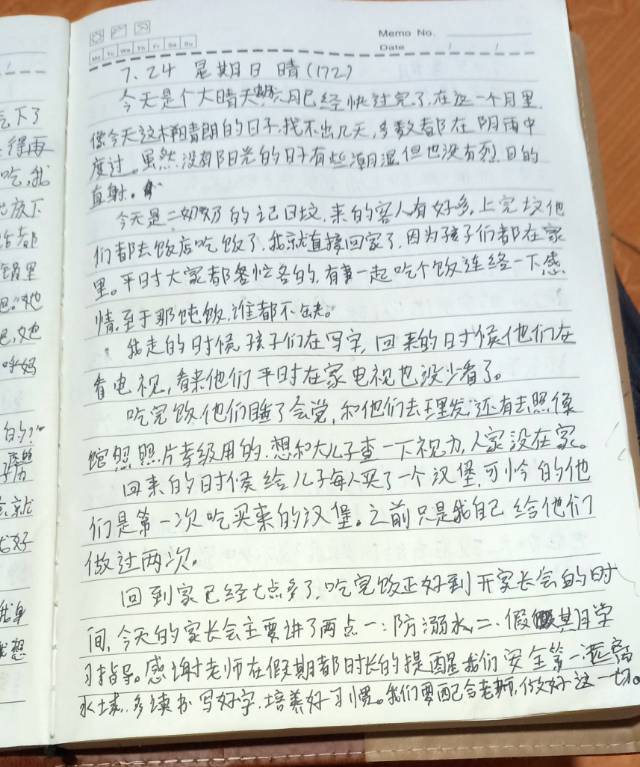 Memo No.
Date / /
Mo Tu We Th Fr Sa Su
7.24 星期日 晴(172)
今天是个大晴天,六月已经快过完了,在这一个月里,
像今天这样晴朗的日子,找不出几天,多数都在阴雨中
度过。虽然没有阳光的日子有些潮湿,但也没有烈日的
直射。
今天是二奶奶的记日坟,来的客人有好多,上完坟他
们都去饭店吃饭了,我就直接回家了,因为孩子们都在家
里。平时大家都各忙各的,有事一起吃个饭连络一下感
情,至于那吨饭,谁都不缺。
我走的时候孩子们在写字,回来的时候他们在
看电视,看来他们平时在家电视也没少看了。
吃完饭他们睡了会觉,和他们去理发还有去照像
馆照照片学级用的,想和大儿子查一下视力,人家没在家。
回来的时候给儿子每人买了一个汉堡,可怜的他
们是第一次吃买来的汉堡。之前只是我自己给他们
做过两次。
回到家已经七点多了,吃完饭正好到开家长会的时
间,今天的家长会主要讲了两点一:防溺水,二、假期学
习指导。感谢老师在假期都时长的提醒我们安全第一,远离
水塘,多读书,写好字,培养好习惯。我们要配合老师,做好这一切。
云下了
得再
吃,我
放下
锅里
她
呼妈
的?"
就
好
我身
我想